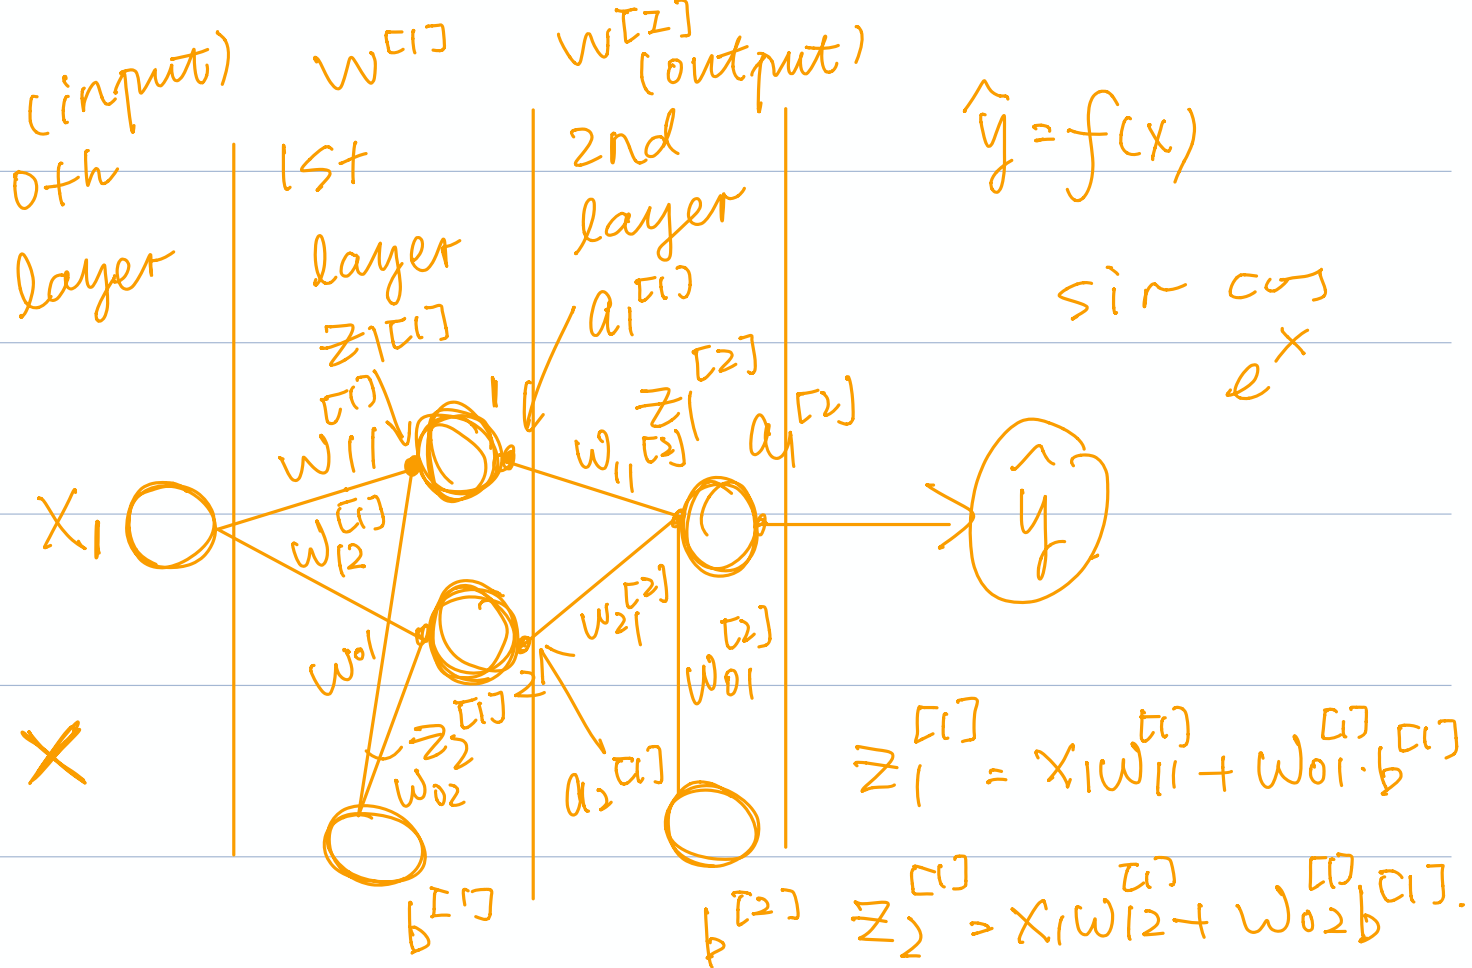 (input)
0th
layer
W[1]
1st
layer
W[2]
(output)
2nd
layer
ŷ = f(x)
sin cos
e^x
Z1[1]
a1[1]
W11[1]
1
Z1[2]
W11[2]
a1[2]
X1
W12[1]
ŷ
W01
2
W21[2]
W01[2]
Z2[1]
W02
a2[1]
X
b[1]
b[2]
Z1[1] = X1W11[1] + W01[1]·b[1]
Z2[1] = X1W12[1] + W02[1]b[1].